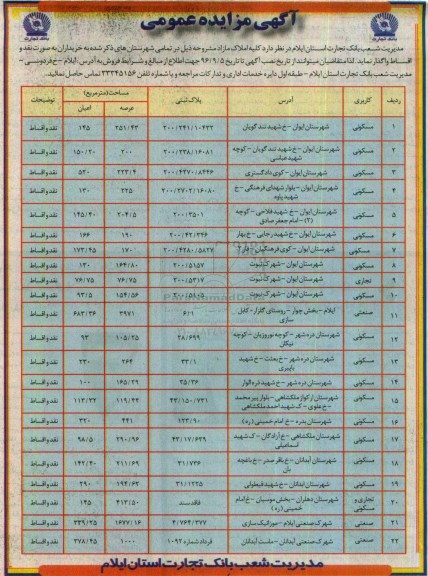 آگهی مزایده عمومی
بانک تجارت
بانک تجارت
مدیریت شعب بانک تجارت استان ایلام در نظر دارد کلیه املاک مازاد مشروحه ذیل در تمامی شهرستان های ذکر شده به خریداران به صورت نقد و
اقساط واگذار نماید. لذا متقاضیان میتوانند از تاریخ نصب آگهی تا تاریخ ۹۶/۹/۵ جهت اطلاع از مبالغ و شرایط فروش به آدرس ایلام - خ فردوسی -
مدیریت شعب بانک تجارت استان ایلام - طبقه اول دایره خدمات اداری و تدارکات مراجعه و یا شماره تلفن ۳۳۳۴۵۱۵۶ تماس حاصل نمائید.
ردیف کاربری آدرس پلاک ثبتی مساحت (مترمربع) توضیحات
عرصه اعیان
۱ مسکونی شهرستان ایوان - خ شهید تندگویان ۲۰۰/۲۴۱/۱۰۴۳۳ ۲۵۱/۴۳ ۱۴۵ نقد و اقساط
۲ مسکونی شهرستان ایوان - خ شهید تندگویان - کوچه شهید عباسی ۲۰۰/۲۳۸/۱۶۰۸۱ ۲۰۰ ۱۵۰/۲۰ نقد و اقساط
۳ مسکونی شهرستان ایوان - کوی دادگستری ۲۰۰/۴۴۷۰/۸۲۴۶ ۲۲۳/۴ ۵۲۰ نقد و اقساط
۴ مسکونی شهرستان ایوان - بلوار شهدای فرهنگی - خ شهید پاوه ۲۰۰/۲۷۰۲/۱۶۰۸۰ ۲۲۵ ۱۳۰ نقد و اقساط
۵ مسکونی شهرستان ایوان - خ شهید فلاحی - کوچه (۲) - امام جعفر صادق ۲۰۰/۳۵۰۱ ۲۰۴/۵ ۱۴۵/۴۰ نقد و اقساط
۶ مسکونی شهرستان ایوان - خ شهید رجایی - خ بهار ۲۰۰/۴۲/۳۴۶ ۱۹۰ ۱۶۶ نقد و اقساط
۷ مسکونی شهرستان ایوان - کوی فرهنگیان - فاز ۲ ۲۰۰/۴۲۸۰/۵۸۲۷ ۱۷۰ ۱۷۳/۴۵ نقد و اقساط
۸ مسکونی شهرستان ایوان - شهرک نبوت ۲۰۰/۵۱۵۷ ۱۶۴/۸۰ ۱۳۰ نقد و اقساط
۹ تجاری شهرستان ایوان - شهرک نبوت ۲۰۰/۵۳۱۷ ۷۶/۷۵ ۷۶/۷۵ نقد و اقساط
۱۰ مسکونی شهرستان ایوان - شهرک نبوت ۱۵۴/۵۶ ۹۳/۵ نقد و اقساط
۱۱ صنعتی ایلام - بخش چوار - روستای گلزار - کابل سازی ۶/۱ ۳۹۷۱ ۶۸۳/۳۶ نقد و اقساط
۱۲ مسکونی شهرستان دره شهر - کوچه نوروزیان - کوچه نیکان ۲۸/۶۹۹ ۱۰۵/۲۵ ۹۳ نقد و اقساط
۱۳ مسکونی شهرستان دره شهر - خ بعثت - خ شهید باپیری ۳۳/۱ ۲۶۴ ۲۳۰ نقد و اقساط
۱۴ مسکونی شهرستان دره شهر - خ شهید ذره الوار ۳۵/۳۶ ۱۶۵/۲۹ ۱۰۰ نقد و اقساط
۱۵ مسکونی شهرستان ارکواز ملکشاهی - بلوار پیر محمد - خ علوی - ک شهید احمد ملکشاهی ۴۳/۱۵۰/۷۳۱ ۱۱۹/۴۴ ۱۱۳/۳۲ نقد و اقساط
۱۶ مسکونی شهرستان بدره - خ امام خمینی (ره) ۱۲۳/۹۰ ۴۴۱ ۳۲۰ نقد و اقساط
۱۷ مسکونی شهرستان ملکشاهی - خ آزادگان - ک شهید اسماعیلی ۴۳/۱۷/۶۲۹ ۲۹۰/۹۶ ۹۸/۵۰ نقد و اقساط
۱۸ مسکونی شهرستان آبدانان - خ باقر صدر - خ باغچه بان ۳۱/۷۳۶ ۲۱۱/۶۹ ۱۴۲/۴۰ نقد و اقساط
۱۹ مسکونی شهرستان ابدانان - خ شهید فیطولی ۳۱/۱۲۲۵ ۱۹۴/۶۴ ۲۹۰ نقد و اقساط
۲۰ تجاری و مسکونی شهرستان دهلران - بخش موسیان - خ امام خمینی (ره) فاقد سند ۴۱۳/۵۰ ۱۴۵ نقد و اقساط
۲۱ صنعتی شهرک صنعتی ایلام - موزائیک سازی ۴/۷۶۴/۳۷۷ ۱۶۷۷/۱۶ ۳۳۹/۲۵ نقد و اقساط
۲۲ صنعتی شهرک صنعتی آبدانان - ماست آبدانان قرداد شماره ۱۰۹۲ ۱۰۰۰ ۳۷۸/۴۵ نقد و اقساط
مدیریت شعب بانک تجارت استان ایلام